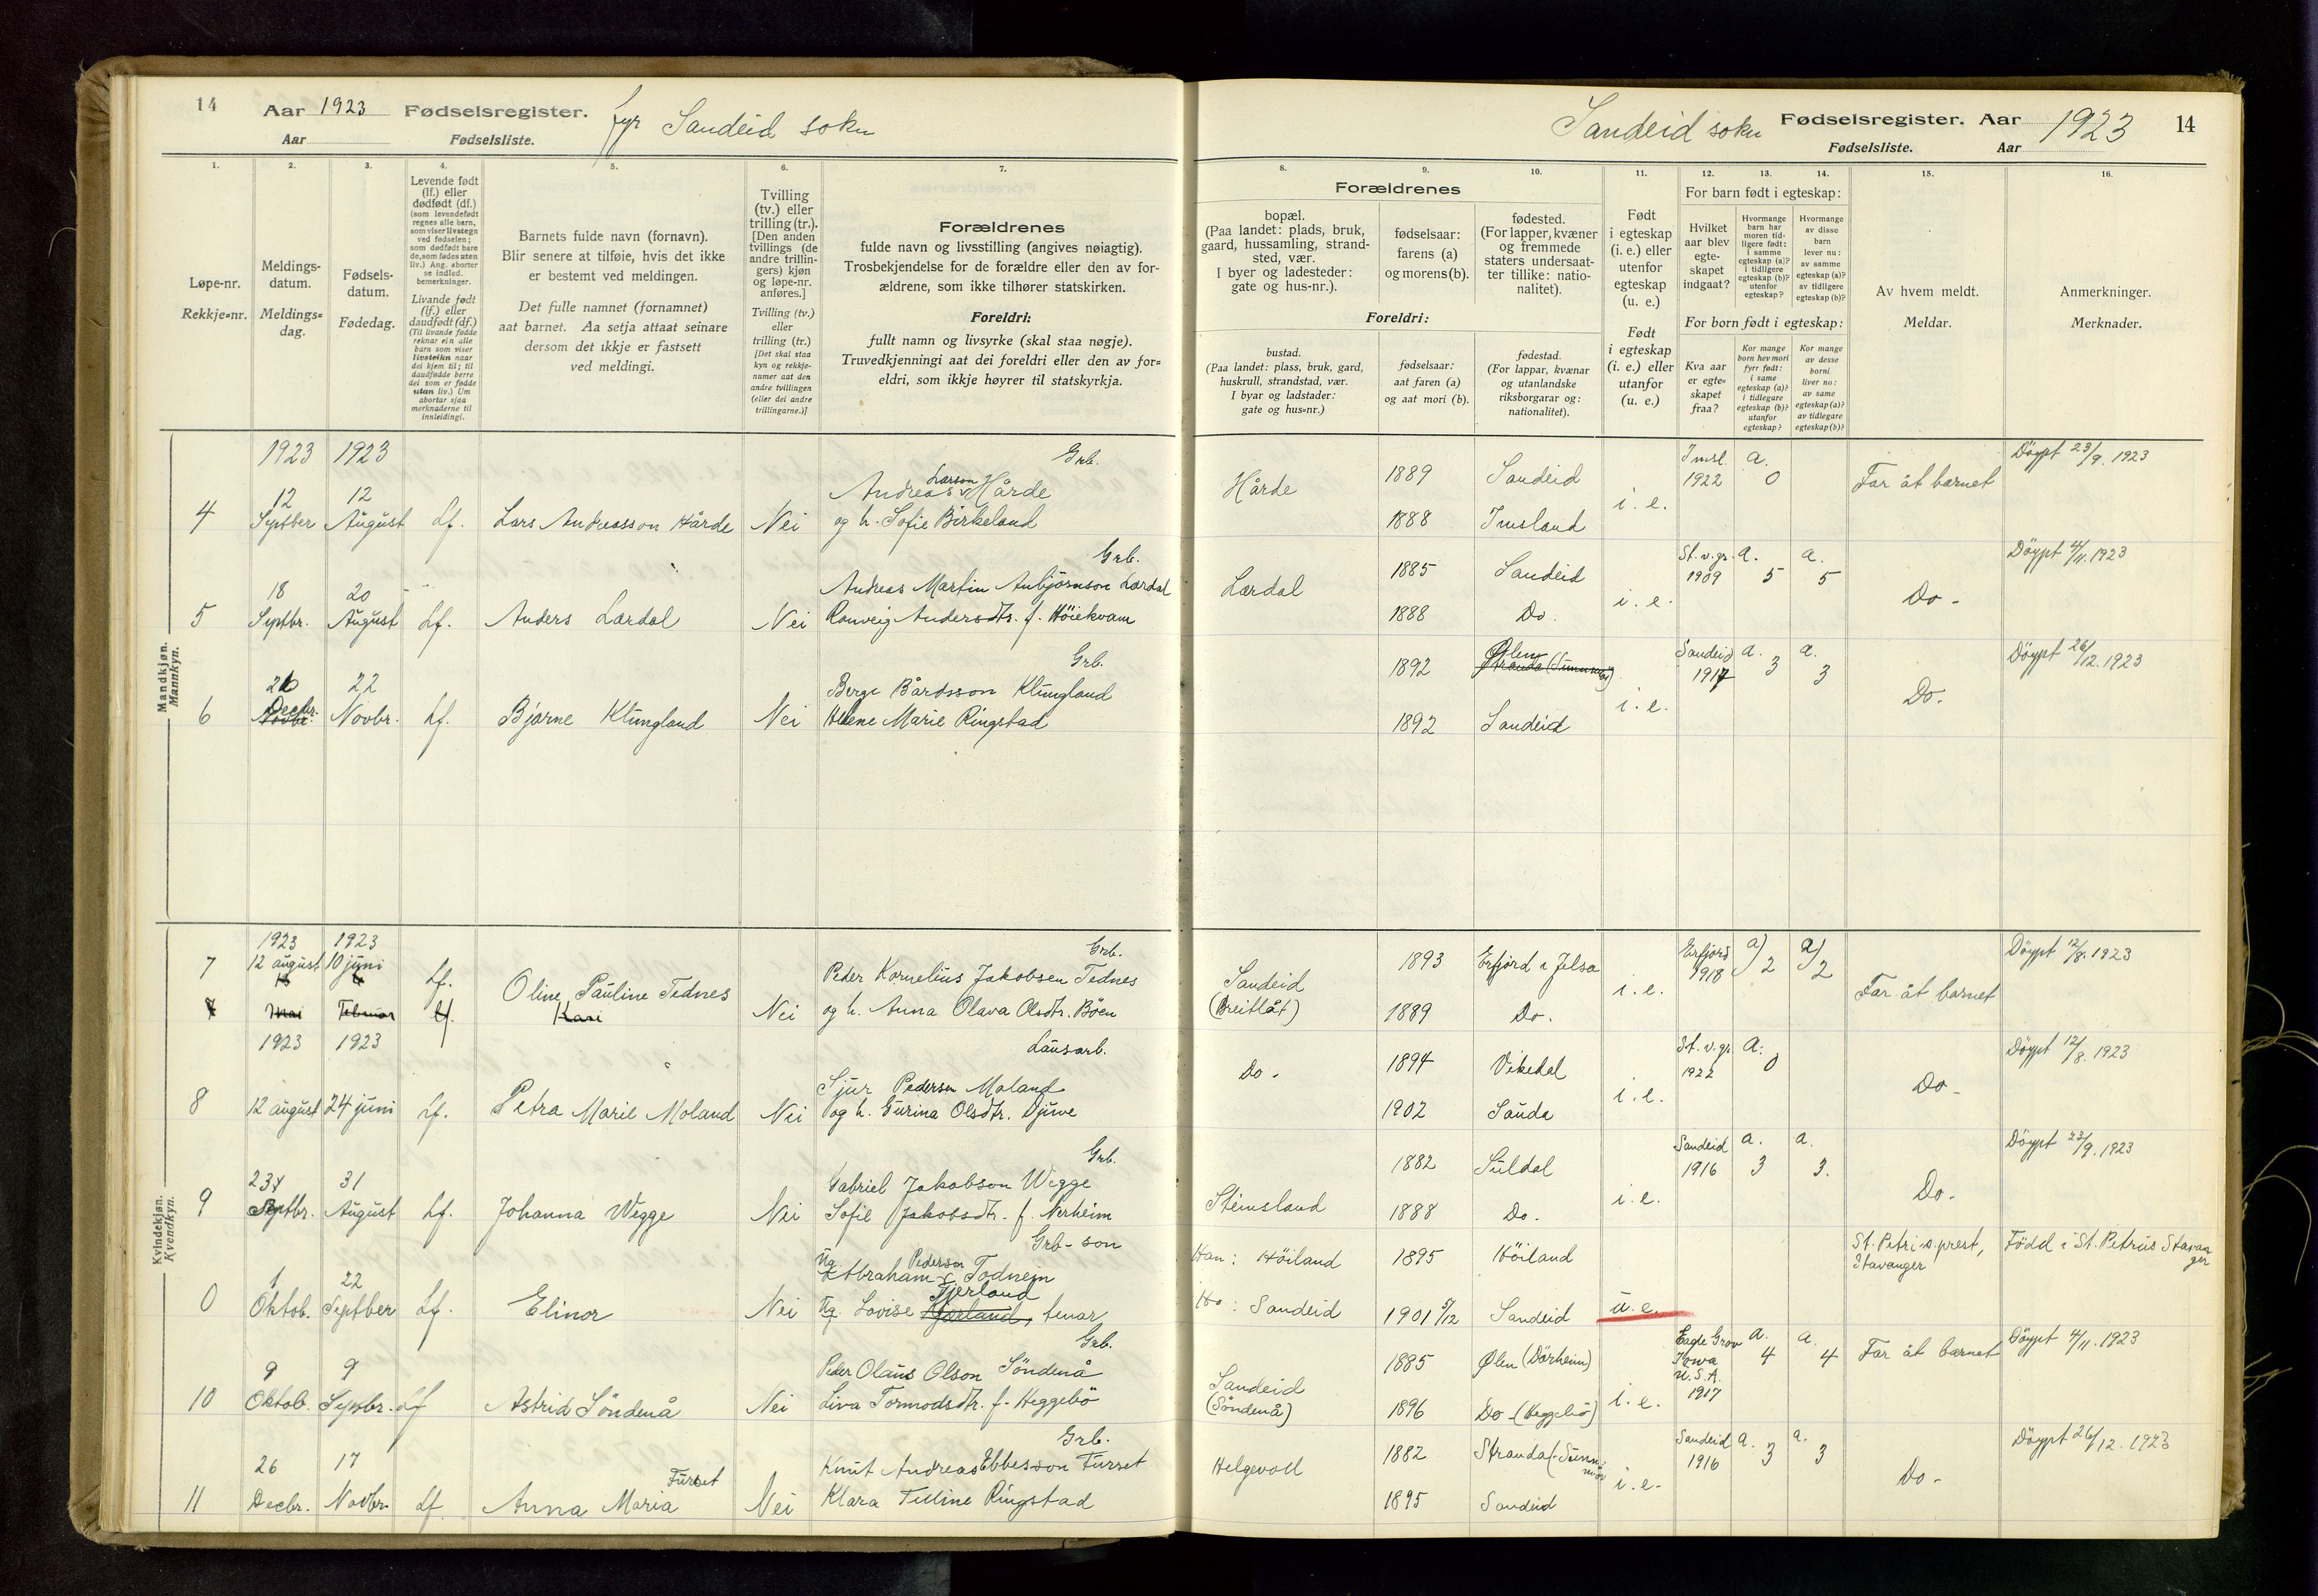 14 Aar 1923 Fødselsregister. fyr Sandeid sokn
Aar Fødselsliste.
Sandeid sokn Fødselsregister. Aar 1923 14
Fødselsliste. Aar
1. 2. 3. 4. 5. 6. 7.
Løpe-nr.
Rekkje=nr.
Meldings-
datum.
Meldings=
dag.
Fødsels-
datum.
Fødedag.
Levende født
(lf.) eller
dødfødt (df.)
(som levendefødt
regnes alle barn,
som viser livstegn
ved fødselen;
som dødfødt bare
de, som fødes uten
liv.) Ang. aborter
se indled.
bemerkninger.
Livande født
(lf.) eller
daudfødt (df.)
(Til livande fødde
reknar ein alle
barn som viser
livsteikn naar
dei kjem til; til
daudfødde berre
dei som er fødde
utan liv.) Um
abortar sjaa
merknaderne til
innleidingi.
Barnets fulde navn (fornavn).
Blir senere at tilføie, hvis det ikke
er bestemt ved meldingen.
Det fulle namnet (fornamnet)
aat barnet. Aa setja attaat seinare
dersom det ikkje er fastsett
ved meldingi.
Tvilling
(tv.) eller
trilling (tr.).
[Den anden
tvillings (de
andre trillin-
gers) kjøn
og løpe-nr.
anføres.]
Tvilling (tv.)
eller
trilling (tr.)
[Det skal staa
kyn og rekkje-
numer aat den
andre tvillingen
(eller dei andre
trillingarne.)]
Forældrenes
fulde navn og livsstilling (angives nøiagtig).
Trosbekjendelse for de forældre eller den av for-
ældrene, som ikke tilhører statskirken.
Foreldri:
fullt namn og livsyrke (skal staa nøgje).
Truvedkjenningi aat dei foreldri eller den av for=
eldri, som ikkje høyrer til statskyrkja.
8. 9. 10. 11. 12. 13. 14. 15. 16.
Forældrenes
bopæl.
(Paa landet: plads, bruk,
gaard, hussamling, strand-
sted, vær.
I byer og ladesteder:
gate og hus-nr.).
fødselsaar:
farens (a)
og morens (b).
fødested.
(For lapper, kvæner
og fremmede
staters undersaat-
ter tillike: natio-
nalitet).
Foreldri:
bustad.
(Paa landet: plass, bruk, gard,
huskrull, strandstad, vær.
I byar og ladstader:
gate og hus=nr.)
fødselsaar:
aat faren (a)
og aat mori (b).
fødestad.
(For lappar, kvænar
og utanlandske
riksborgarar og:
nationalitet).
Født
i egteskap
(i. e.) eller
utenfor
egteskap
(u. e.)
Født
i egteskap
(i. e.) eller
utanfor
(u. e.)
For barn født i egteskap:
Hvilket
aar blev
egte-
skapet
indgaat?
Hvormange
barn har
moren tid-
ligere født:
i samme
egteskap (a)?
i tidligere
egteskap (b)?
utenfor
egteskap?
Hvormange
av disse
barn
lever nu:
av samme
egteskap (a)?
av tidligere
egteskap (b)?
For born født i egteskap:
Kva aar
er egte=
skapet
fraa?
Kor mange
born hev mori
fyrr født:
i same
egteskap (a)?
i tidlegare
egteskap (b)?
utanfor
egteskap?
Kor mange
av desse
borni
liver no:
av same
egteskap (a)?
av tidlegare
egteskap (b)?
Av hvem meldt.
Meldar.
Anmerkninger.
Merknader.
Mandkjøn.
Mannkyn.
1923 1923 Grb.
4 12 Septber 12 August Lf. Lars Andreasson Hårde Nei Andreas Larson Hårde
og h. Sofie Birkeland
Hårde 1889 Sandeid i. e. Imsl. 1922 a. 0 Far åt barnet Döypt 23/9. 1923
1888 Imsland
Grb.
5 18 Septbr. 20 August Lf. Anders Lærdal Nei Andreas Martin Anbjörnson Lærdal
Ranveig Andersdtr. f. Höiekvam
Lærdal 1885 Sandeid i. e. St. v. gr. 1909 a. 5 a. 5 Do. Döypt 4/11. 1923
1888 Do
Grb.
6 26 Decbr. 22 Novbr. Lf. Bjarne Klungland Nei Berge Bårdsson Klungland
Helene Marie Ringstad
1892 Ølen i. e. Sandeid 1917 a. 3 a. 3 Do. Döypt 26/12. 1923
1892 Sandeid
Kvindekjøn.
Kvendkyn.
1923 1923 Grb.
7 12 august 10 juni Lf. Oline Pauline Tednes Nei Peder Kornelius Jakobsen Tednes
Mai Februar Kari og h. Anna Olava Olsdtr. Böen
Sandeid (Breiflåt) 1893 Erfjord i Jelsa i. e. Erfjord 1918 a) 2 a) 2 Far åt barnet Döypt 12/8. 1923
1889 Do.
1923 1923 Lausarb.
8 12 august 24 juni Lf. Petra Marie Moland Nei Sjur Pedersen Moland
og h. Gurina Olsdtr. Djuve
Do. 1894 Vikedal i. e. St. v. gr. 1922 a: 0 Do Döypt 12/8. 1923
1902 Sauda
Grb.
9 23 Septbr. 31 August Lf. Johanna Vegge Nei Gabriel Jakobson Vegge
Sofie Jakobsdtr. f. Nerheim
Steinsland 1882 Suldal i. e. Sandeid 1916 a. 3 a. 3. Do. Döypt 23/9. 1923
1888 Do.
Grb-son
0 1 Oktob. 22 Septber Lf. Elinor Nei Ug. Abraham Pederson Todneim
Ug. Lovise Fjerland, tenar
Han: Höiland 1895 Höiland St. Petri s. prest, Stavanger Född i St. Petrus Stavanger
Ho: Sandeid 1901 5/12 Sandeid u. e.
Grb.
10 9 Oktob. 9 Septbr. Lf Astrid Söndenå Nei Peder Olaus Olson Söndenå
Liva Tormodsdtr. f. Heggebö
Sandeid (Söndenå) 1885 Ølen (Dörheim) i. e. Eagle Grov Iowa U.S.A. 1917 a. 4 a. 4 Far åt barnet Döypt 4/11. 1923
1896 Do (Heggebö)
Grb.
11 26 Decbr. 17 Novbr. Lf. Anna Maria Furset Nei Knut Andreas Ebbesson Furset
Klara Teline Ringstad
Helgevoll 1882 Stranda (Sunnmör i. e. Sandeid 1916 a. 3 a. 3 Do. Döypt 26/12. 1923
1895 Sandeid